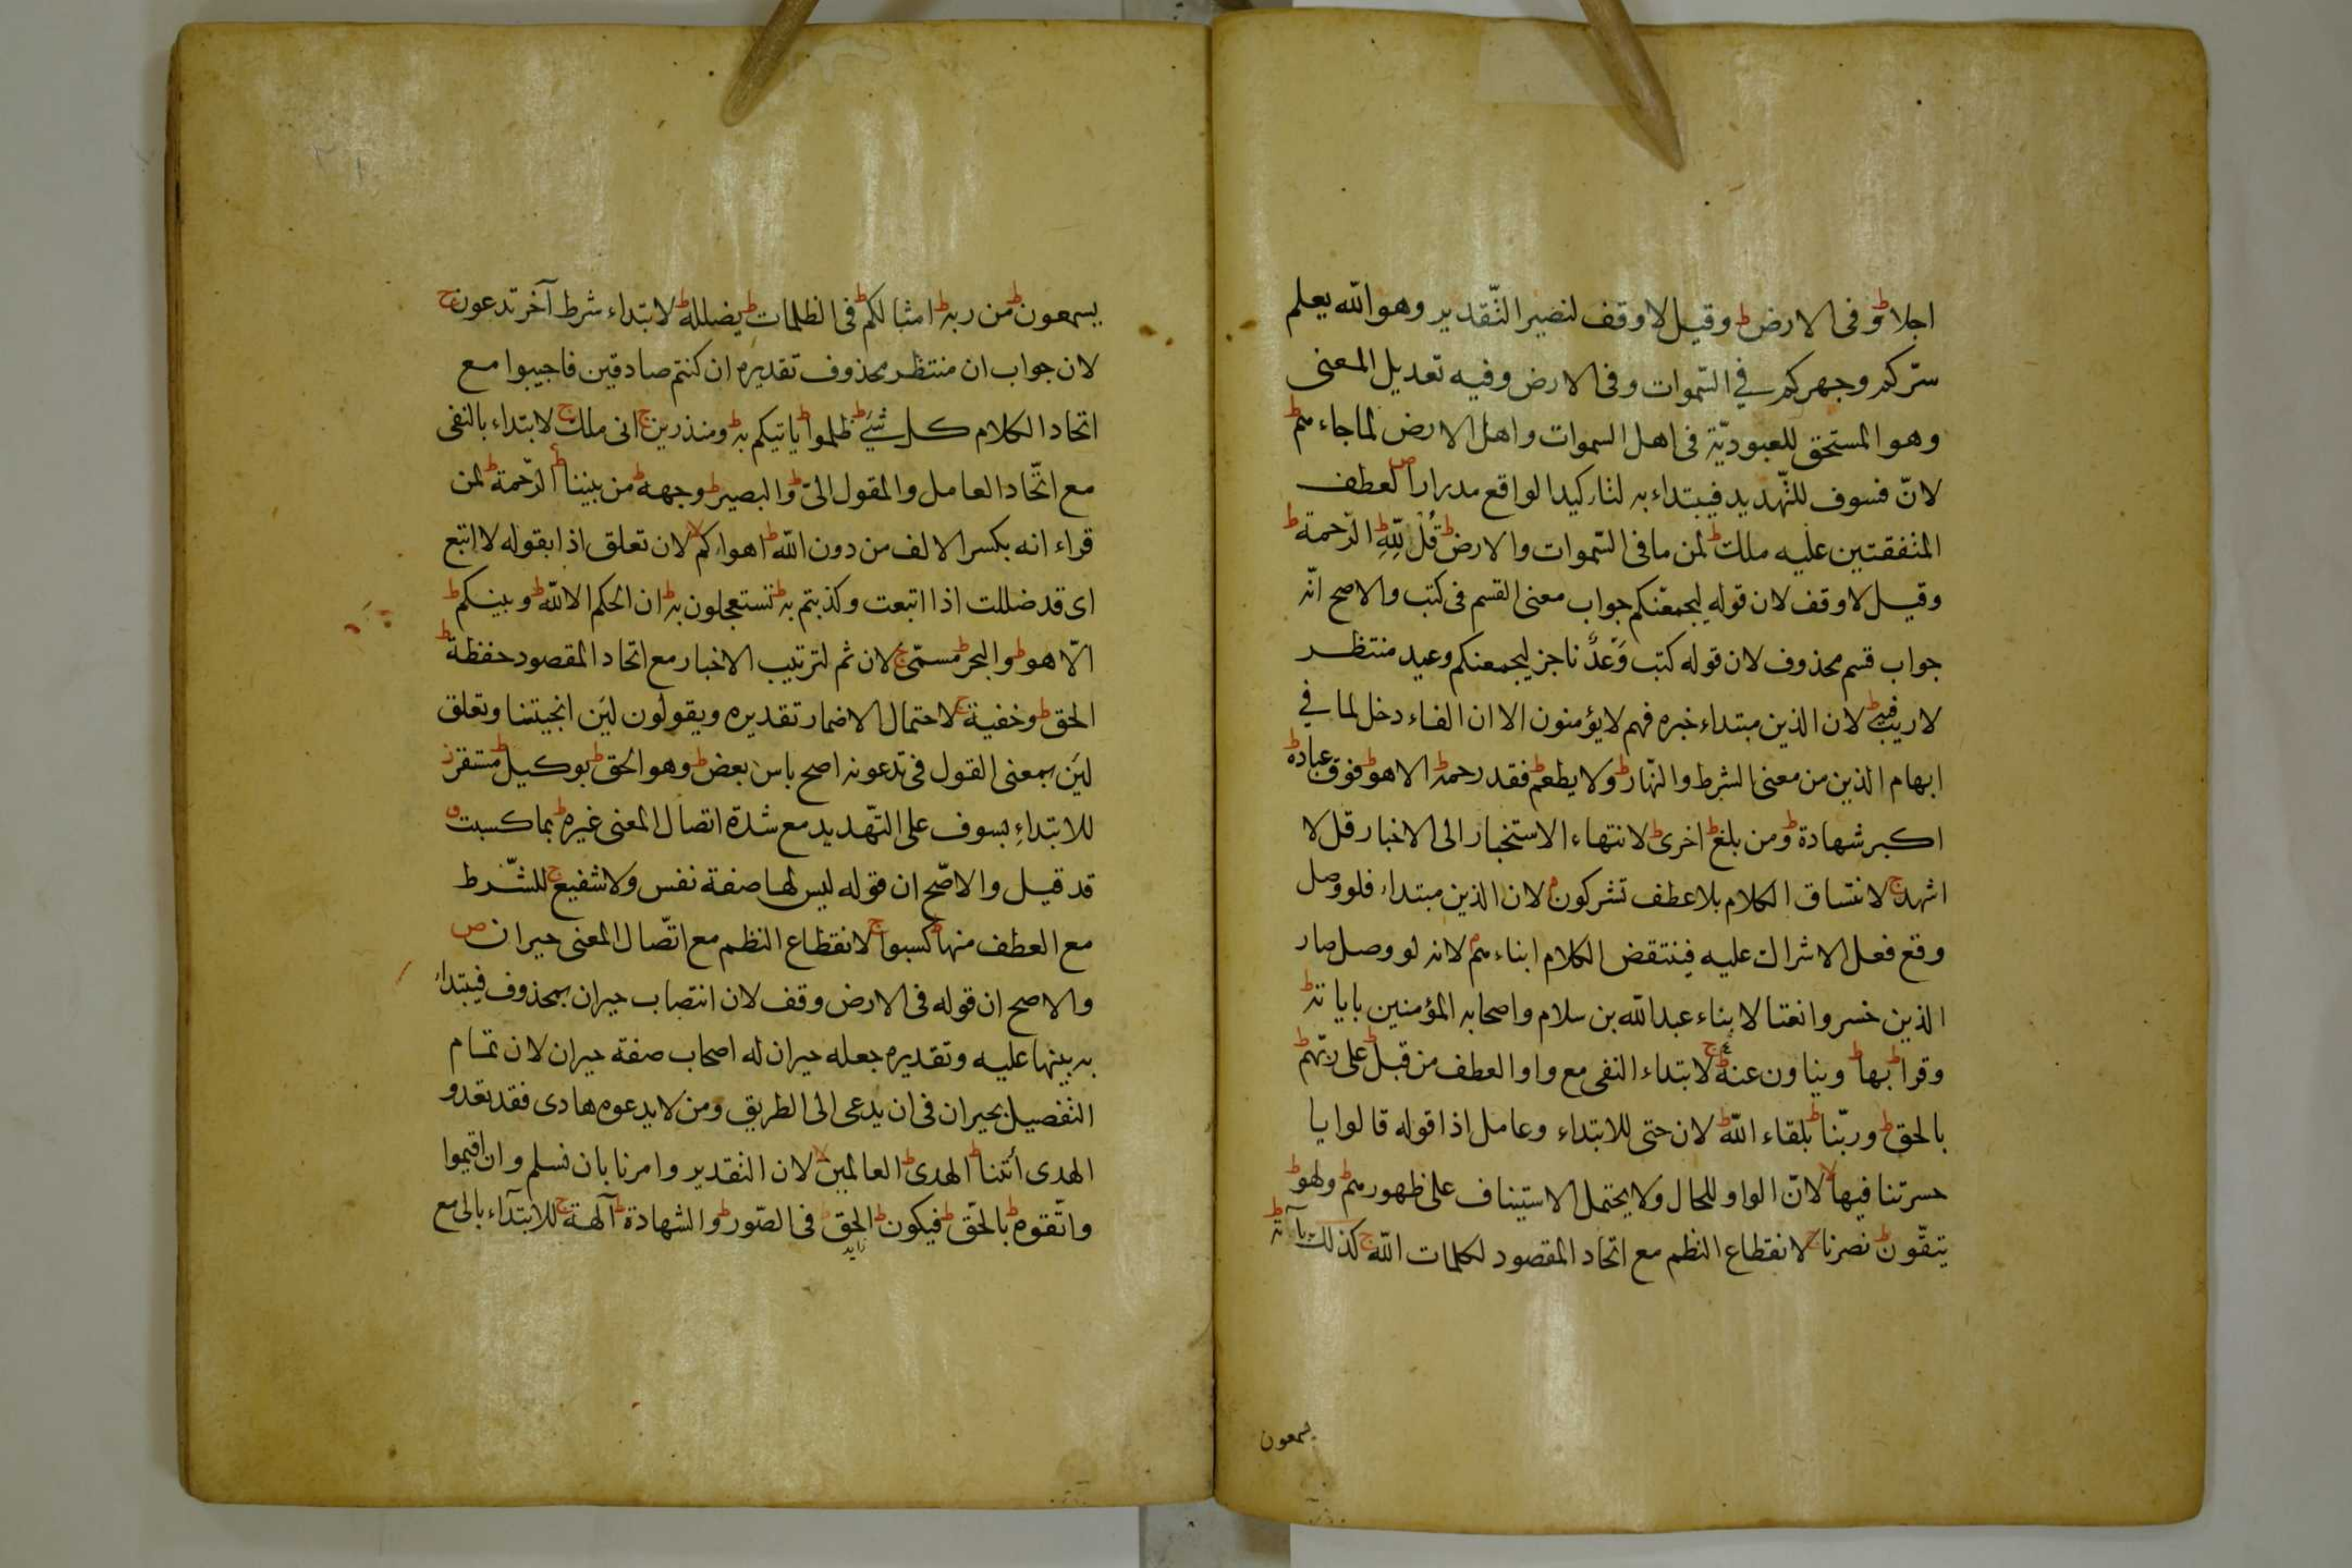 اجلا ط وفى الارض ط وقيل لا وقف لنصير التّقدير وهو الله يعلم
سرّكم وجهركم في السّموات وفى الارض وفيه تعديل المعنى
وهو المستحق للعبوديّة فى اهل السموات واهل الارض لما جاءهم ط
لانّ فسوف للتّهديد فيبتداء به لتاكيد الواقع مدرارا ص لعطف
المتفقتين عليه ملك ط لمن ما فى السّموات والارض ط قُلْ لِلّهِ ط الرّحمة ط
وقيل لا وقف لان قوله ليجمعنّكم جواب معنى القسم فى كتب والاصح انّه
جواب قسم محذوف لان قوله كتب وَعْدٌ ناجز ليجمعنكم وعيد منتظر
لاريب فيه ط لان الذين مبتداء خبره فهم لا يؤمنون الا ان الفاء دخل لما في
ابهام الذين من معنى الشرط والنّهار ط ولا يطعم ط فقد رحمه ط الا هو ط فوق عباده ط
اكبر شهادة ط ومن بلغ ط اخرى ط لانتهاء الاستخبار الى الاخبار قل لا
اشهد ج لاتساق الكلام بلا عطف تشركون م لان الذين مبتداء فلو وصل
وقع فعل الاشراك عليه فينتقض الكلام ابناءهم م لانه لو وصل صار
الذين خسروا نعتا لابناء عبدالله بن سلام واصحابه المؤمنين باياته ط
وقرا ط بها ط ويناون عنه ج لابتداء النفى مع واو العطف من قبل ط على ربّهم ط
بالحق ط وربّنا ط بلقاء الله ط لان حتى للابتداء وعامل اذا قوله قالوا يا
حسرتنا فيها لا لانّ الواو للحال ولا يحتمل الاستيناف على ظهورهم ط ولهو ط
يتقّون ط نصرنا ج لانقطاع النظم مع اتحاد المقصود لكلمات الله ج كذلك بآية ط
يسمعون
يسمعون ط من ربه ط امثالكم ط فى الظلمات ط يضلله ط لابتداء شرط آخر تدعون ج
لان جواب ان منتظر محذوف تقديره ان كنتم صادقين فاجيبوا مع
اتحاد الكلام كل شيء ط ظلموا ط ياتيكم به ط ومنذرين ج انى ملك ج لابتداء بالنفى
مع اتّحاد العامل والمقول الىّ ط والبصير ط وجهه ط من بيننا ط الرّحمة ط لمن
قراء انه بكسر الالف من دون الله ط اهواءكم لا لان تعلق اذا بقوله لا اتبع
اى قد ضللت اذا اتبعت وكذبتم به ط تستعجلون به ط ان الحكم الا لله ط وبينكم ط
الّا هو ط والبحر ط مسمّى ج لان ثم لترتيب الاخبار مع اتحاد المقصود حفظة ط
الحق ط وخفية ج لاحتمال الاضمار تقديره ويقولون لئن انجيتنا وتعلق
لئن بمعنى القول فى تدعونه اصح باس بعض ط وهو الحق ط بوكيل ط مستقر ز
للابتداءِ بسوف على التّهديد مع شدة اتصال المعنى غيره ط بما كسبت ق
قد قيل والاصّح ان قوله ليس لها صفة نفس ولا شفيع ج للشّرط
مع العطف منها ط كسبوا ج لانقطاع النظم مع اتّصال المعنى حيران ص
والاصح ان قوله فى الارض وقف لان انتصاب حيران بمحذوف فيبتداء
به بينها عليه وتقديره جعله حيران له اصحاب صفة حيران لان تمام
التفصيل بحيران فى ان يدعى الى الطريق ومن لا يدعوه هادى فقد تعدو
الهدى أئتنا ط الهدى ط العالمين لا لان التقدير وامرنا بان نسلم وان اقيموا
واتّقوه ط بالحّق ط فيكون ط الحق ط فى الصّور ط والشهادة ط آلهة ج للابتدآء بالى مع